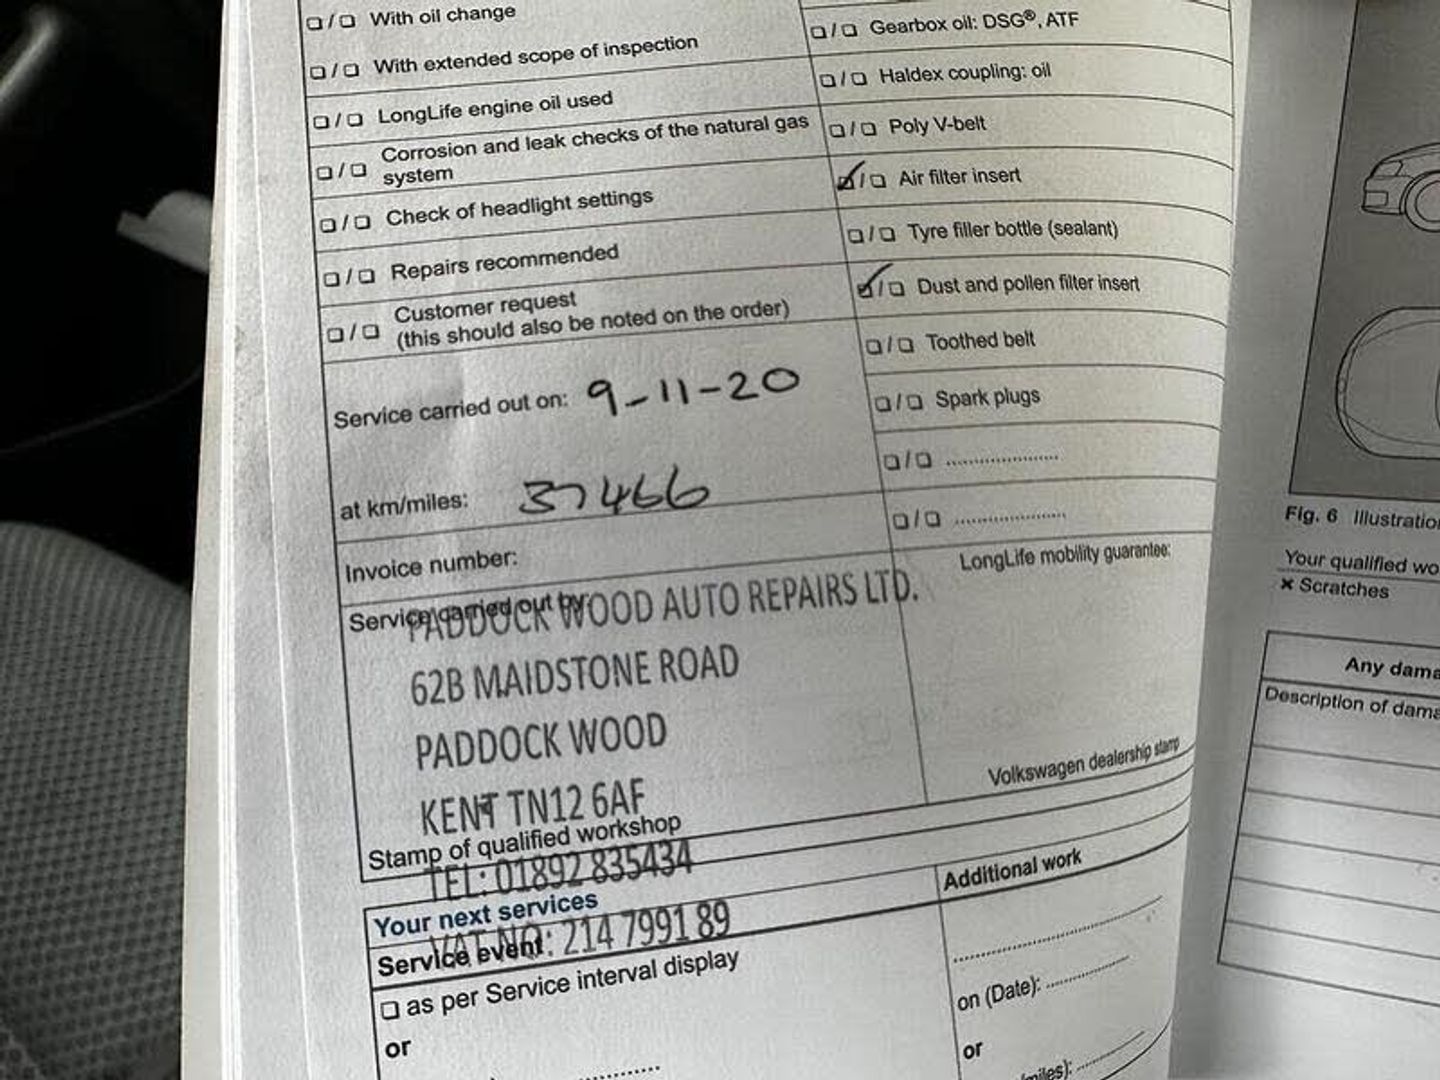 ❏/❏ With oil change
❏/❏ With extended scope of inspection
❏/❏ LongLife engine oil used
❏/❏ Corrosion and leak checks of the natural gas
system
❏/❏ Check of headlight settings
❏/❏ Repairs recommended
❏/❏ Customer request
(this should also be noted on the order)
Service carried out on: 9-11-20
at km/miles: 37466
Invoice number:
Service carried out by:
PADDOCK WOOD AUTO REPAIRS LTD.
62B MAIDSTONE ROAD
PADDOCK WOOD
KENT TN12 6AF
Stamp of qualified workshop
TEL: 01892 835434
Your next services
VAT NO: 214 7991 89
Service event
❏ as per Service interval display
or
❏/❏ Gearbox oil: DSG®, ATF
❏/❏ Haldex coupling: oil
❏/❏ Poly V-belt
☑/❏ Air filter insert
❏/❏ Tyre filler bottle (sealant)
☑/❏ Dust and pollen filter insert
❏/❏ Toothed belt
❏/❏ Spark plugs
❏/❏ ....................
❏/❏ ....................
LongLife mobility guarantee:
Volkswagen dealership stamp
Additional work
on (Date): ..............
or
Fig. 6 Illustratio
Your qualified wo
× Scratches
Any dama
Description of dama